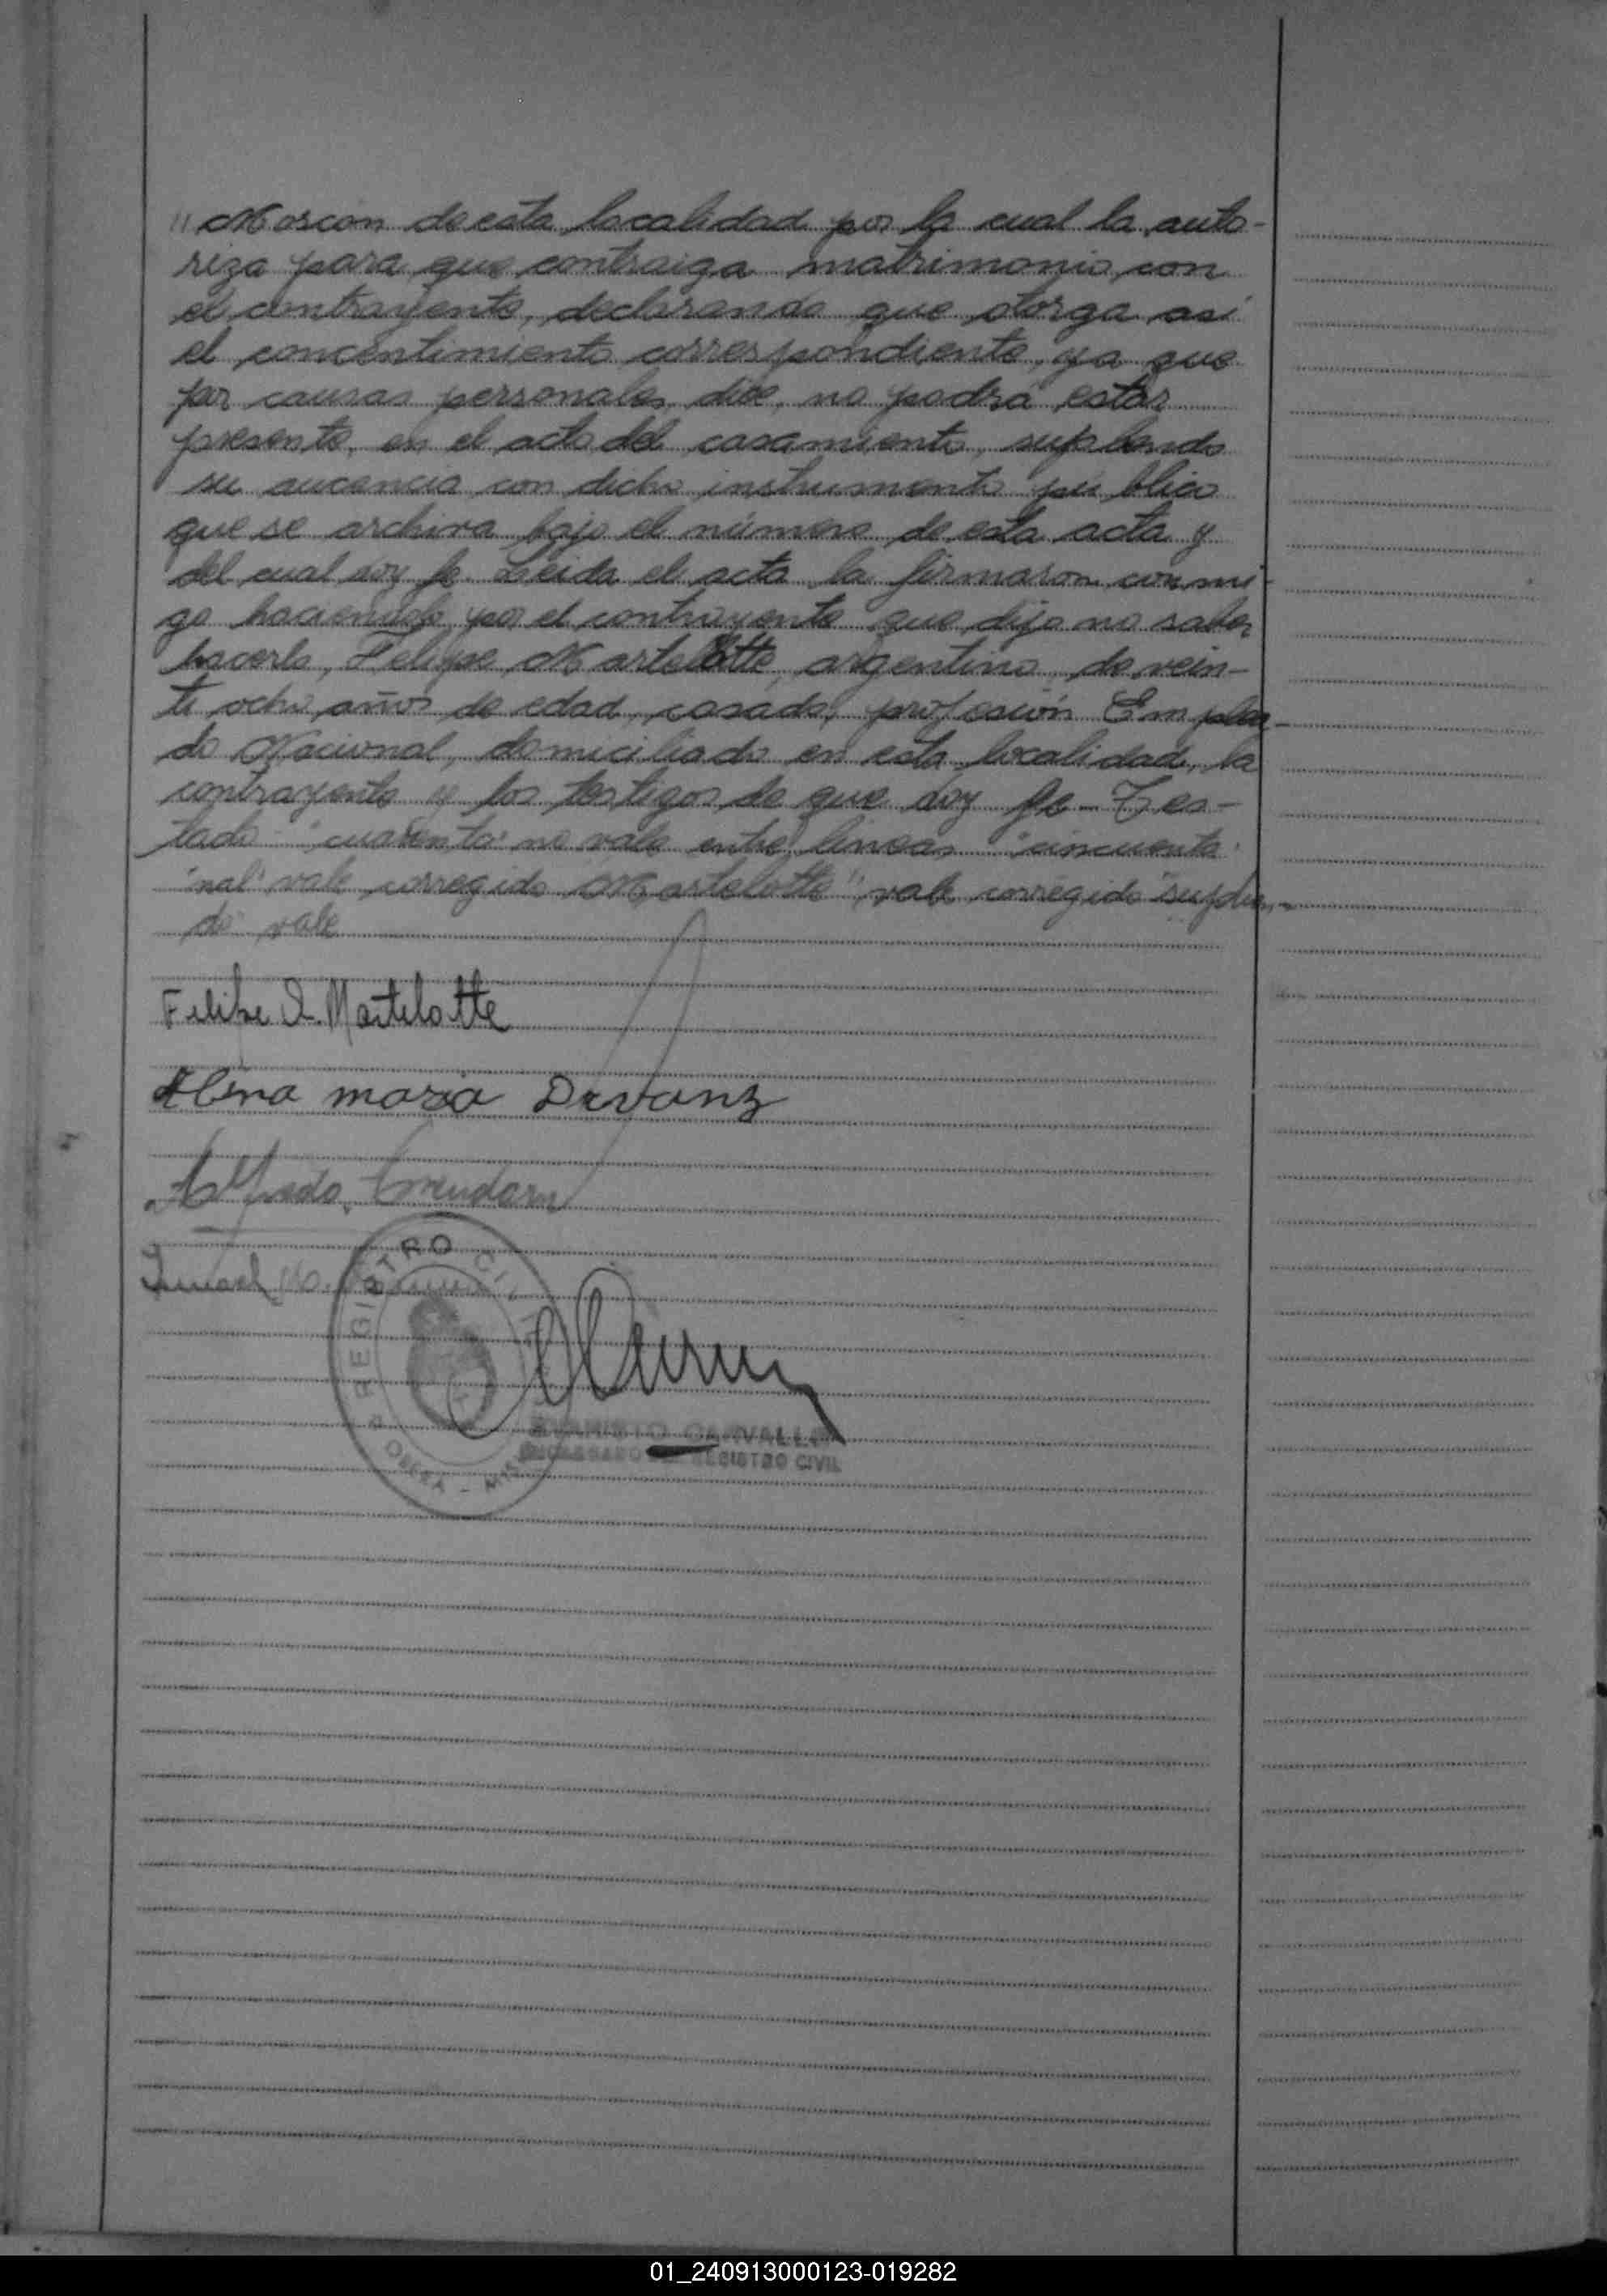 " Moscon de esta localidad por la cual la auto-
riza para que contraiga matrimonio con
el contrayente, declarando que otorga así
el concentimiento correspondiente, ya que
por causas personales, dice, no podrá estar
presente, en el acto del casamiento, supliendo
su aucencia con dicho instrumento público
que se archiva bajo el número de esta acta y
del cual doy fe. Leida el acta la firmaron conmi-
go haciendolo por el contrayente que dijo no saber
hacerlo, Felipe Martelotte, argentino, de vein-
ti ocho años de edad, casado, profesión Emplea-
do Nacional, domiciliado en esta localidad, la
contrayente y los testigos de que doy fe - Tes-
tado "cuarenta" no vale entre lineas "cincuenta"
"nal" vale corregido "Martelotte" vale corregido "suplien-
do" vale
Felipe Martelotte
Albina maria Dravanz
Alfredo
REGISTRO CIVIL
OBERA - MIS
CARVALLO
ENCARGADO REGISTRO CIVIL
01_240913000123-019282